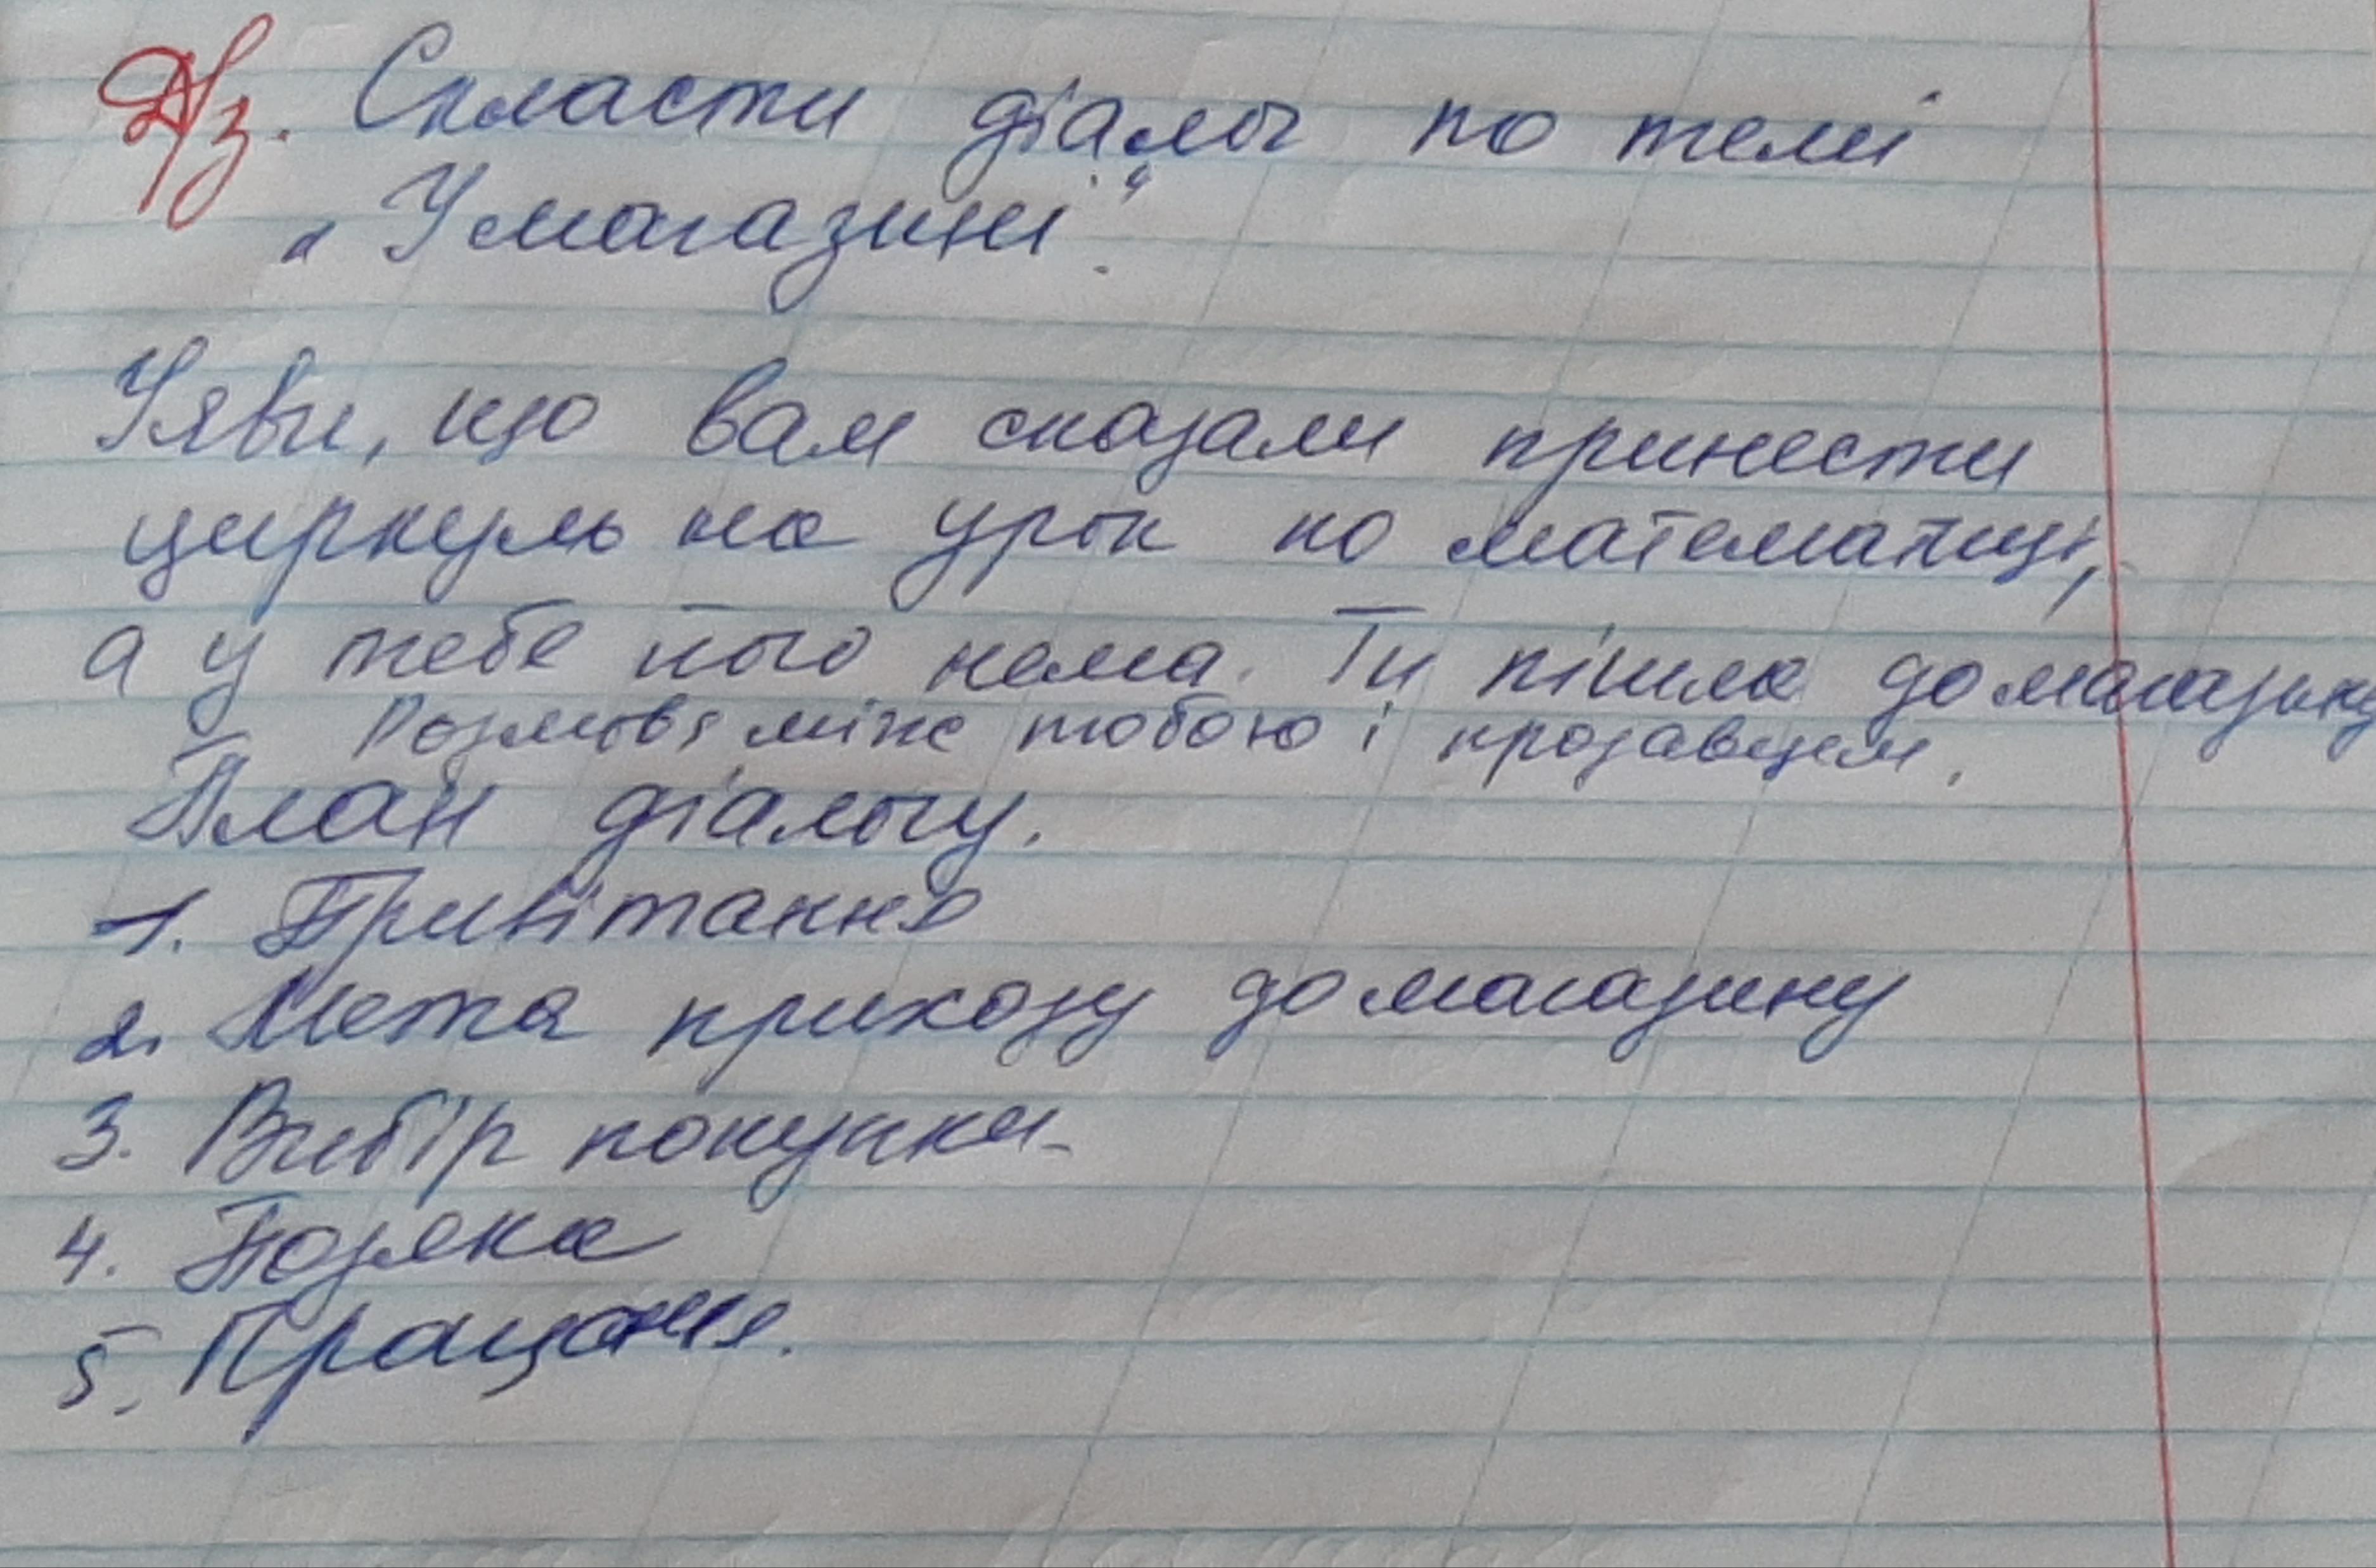 Д/з. Скласти діалог по темі
„У магазині“.
Уяви, що вам сказали принести
циркуль на урок по математиці,
а у тебе його нема. Ти пішла до магазину
Розмова між тобою і продавцем.
План діалогу.
1. Привітання
2. Мета приходу до магазину
3. Вибір покупки
4. Подяка
5. Прощання.